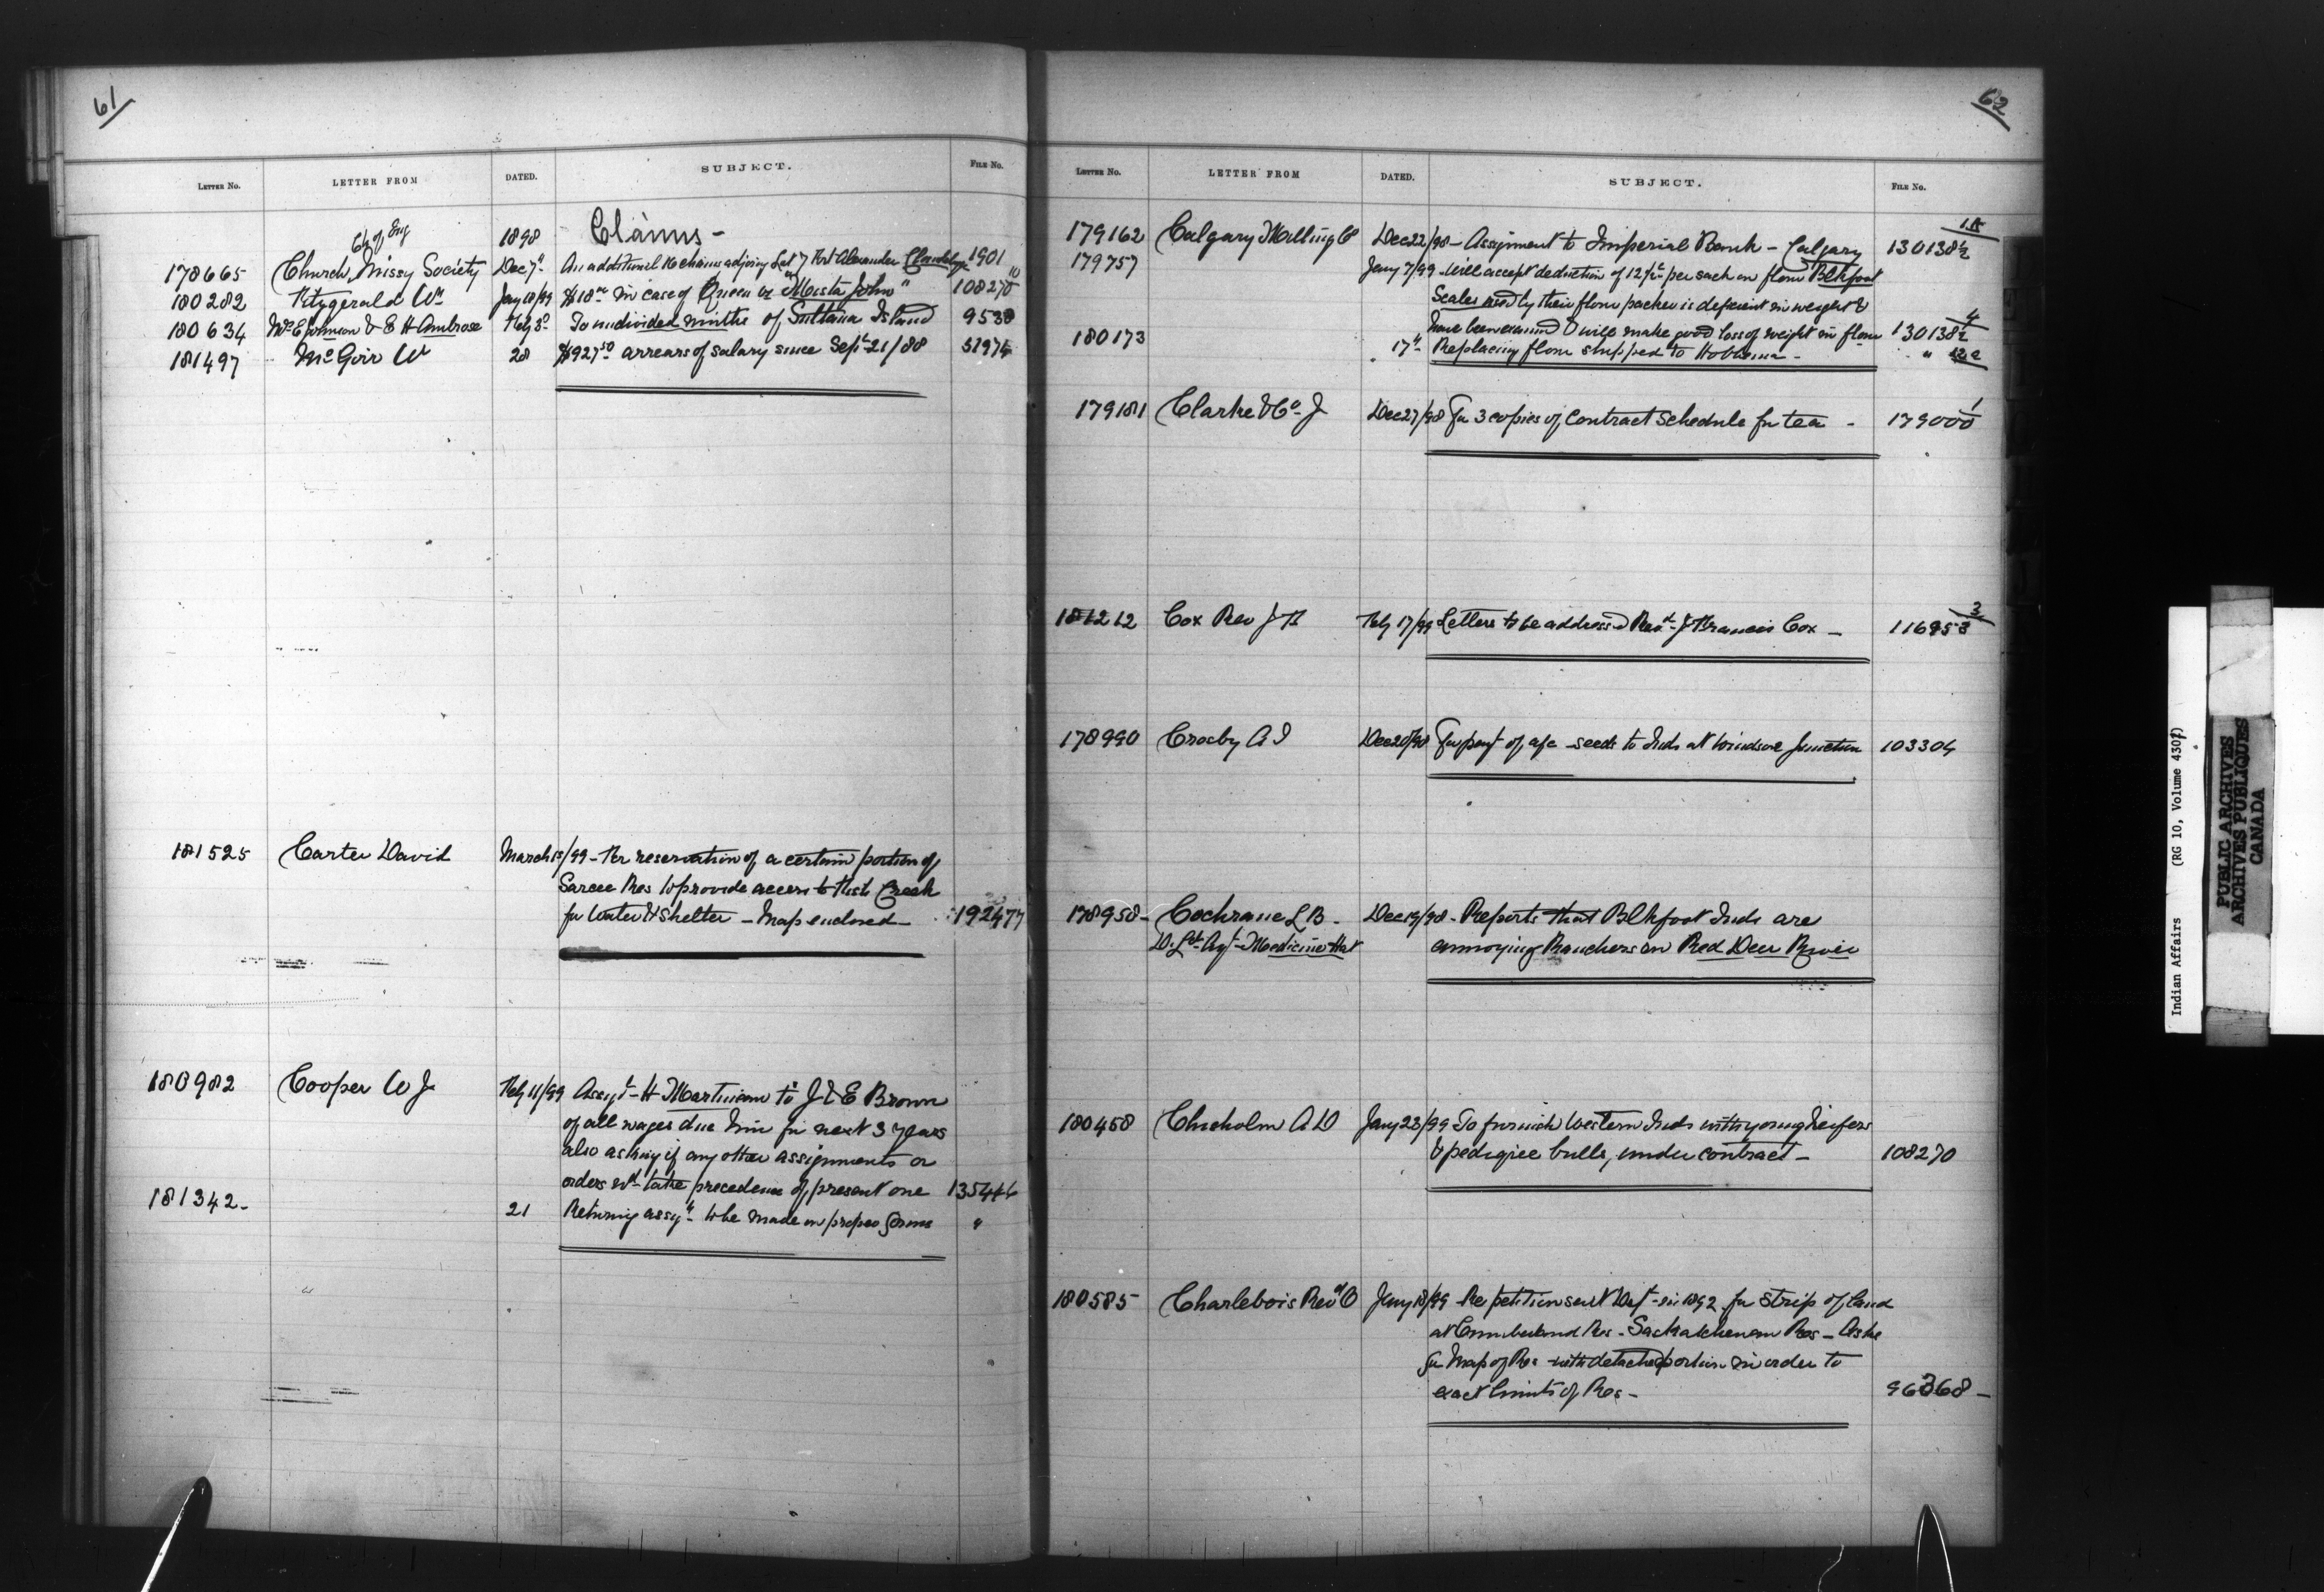 61
LETTER No. LETTER FROM DATED. SUBJECT. FILE No.
Ch of Eng 1898 Claims -
178665 Church Missy Society Dec 7" An additional 16 chains adjoing Lot 7 Fort Alexander 1901
180282 Fitzgerald Wm Jany 18/99 $18 in case of Queen vs "Mista John" 108270 10
180634 McE Johnson & E H Ambrose Feby 3d To undivided ninths of Sultana Island 9538
181497 McGirr W 28 $927 50 arrears of salary since Sept 21/88 51974
181525 Carter David March 1st/99 - Re reservation of a certain portion of
Sarcee Res to provide access to Fish Creek
for Water & Shelter - Map enclosed - 192477
180982 Cooper W J Feby 11/99 Assgt - H Martineau to J & E Brown
of all wages due him for next 3 years
also asking if any other assignments or
orders wd take precedence of present one 135446
181342 - 21 Returning assgt - to be made in proper form "
62
LETTER No. LETTER FROM DATED. SUBJECT. FILE No.
179162 Calgary Milling Co Dec 22/98 - Assignment to Imperial Bank - Calgary 130138½
179757 Jany 7/99 - Will accept deduction of 12½c per sack on flour Blkfoot
Scales used by their flour packer is deficient in weight &
180173 have been examined & will make good loss of weight in flour 130138½ 4
17" Replacing flour shipped to Hobbema - "
179181 Clarke & Co J Dec 27/98 For 3 copies of Contract Schedule for tea - 179000 1
181212 Cox Rev J F Feby 17/99 Letters to be addressed Revd J Francis Cox - 116953 3
178990 Crosby A J Dec 20/98 For payt of a/c - seeds to Inds at Windsor Junction 103304
178958 - Cochrane L B - Dec 19/98 - Reports that Blkfoot Inds are
D. Ld Agt - Medicine Hat annoying Ranchers on Red Deer River
180458 Chisholm A D Jany 23/99 To furnish Western Inds with young heifers
& pedigree bulls, under contract - 108270
180585 Charlebois Revd O Jany 18/99 - Re petition sent Dept - in 1892 for strip of land
at Cumberland Res - Saskatchewan Res - Asks
for Map of Res with detached portion in order to
exact limits of Res - 96368 -
Indian Affairs (RG 10, Volume 4307)
PUBLIC ARCHIVES
ARCHIVES PUBLIQUES
CANADA